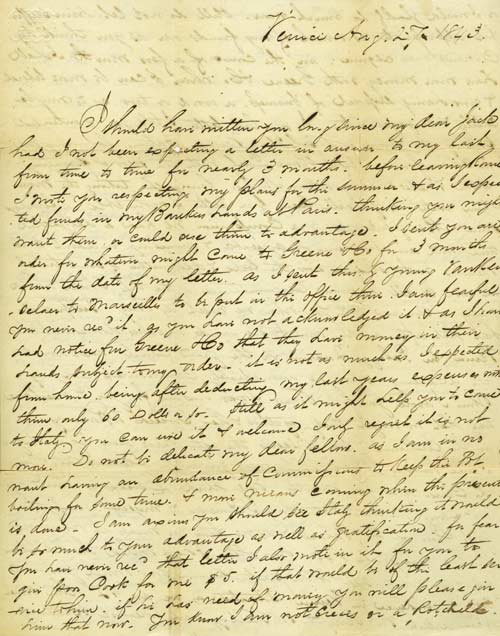 Venice Aug. 27. 1843.
I Should have written you long since my dear Jack
had I not been expecting a letter in answer to my last
from time to time for nearly 3 months. before leaving
I wrote you respecting my plans for the summer & as I expec
ted funds in my Bankers hands at Paris. thinking you might
want them or could use them to advantage. I sent you an
order for whatever might come to Greene & Co for 3 months
from the date of my letter. As I sent this by young
to Marseilles to be put in the office there. I am fearful
you never recd it. as you have not acknowledged it & as I have
had notice fm Greene & Co that they have money in their
hands subject to my order. it is not as much as I expected
from home. being after deducting my last years expenses
them only 60 Dolls or so. Still as it might help you to come
to Italy you can use it & welcome I only regret it is not
more. Do not be delicate my dear fellow. as I am in no
want having an abundance of Commissions to keep the Pot
boiling for some time. & more means coming when the present
is done. I am anxious you should see Italy thinking it would
be so much to your advantage as well as gratification. for fear
you have never recd that letter I also wrote in it for you to
give poor Cook for me $5. if that would be of the least ser
vice to him. if he has need of money you will please give
him that now. You know I am not Cresus or a Rotchild